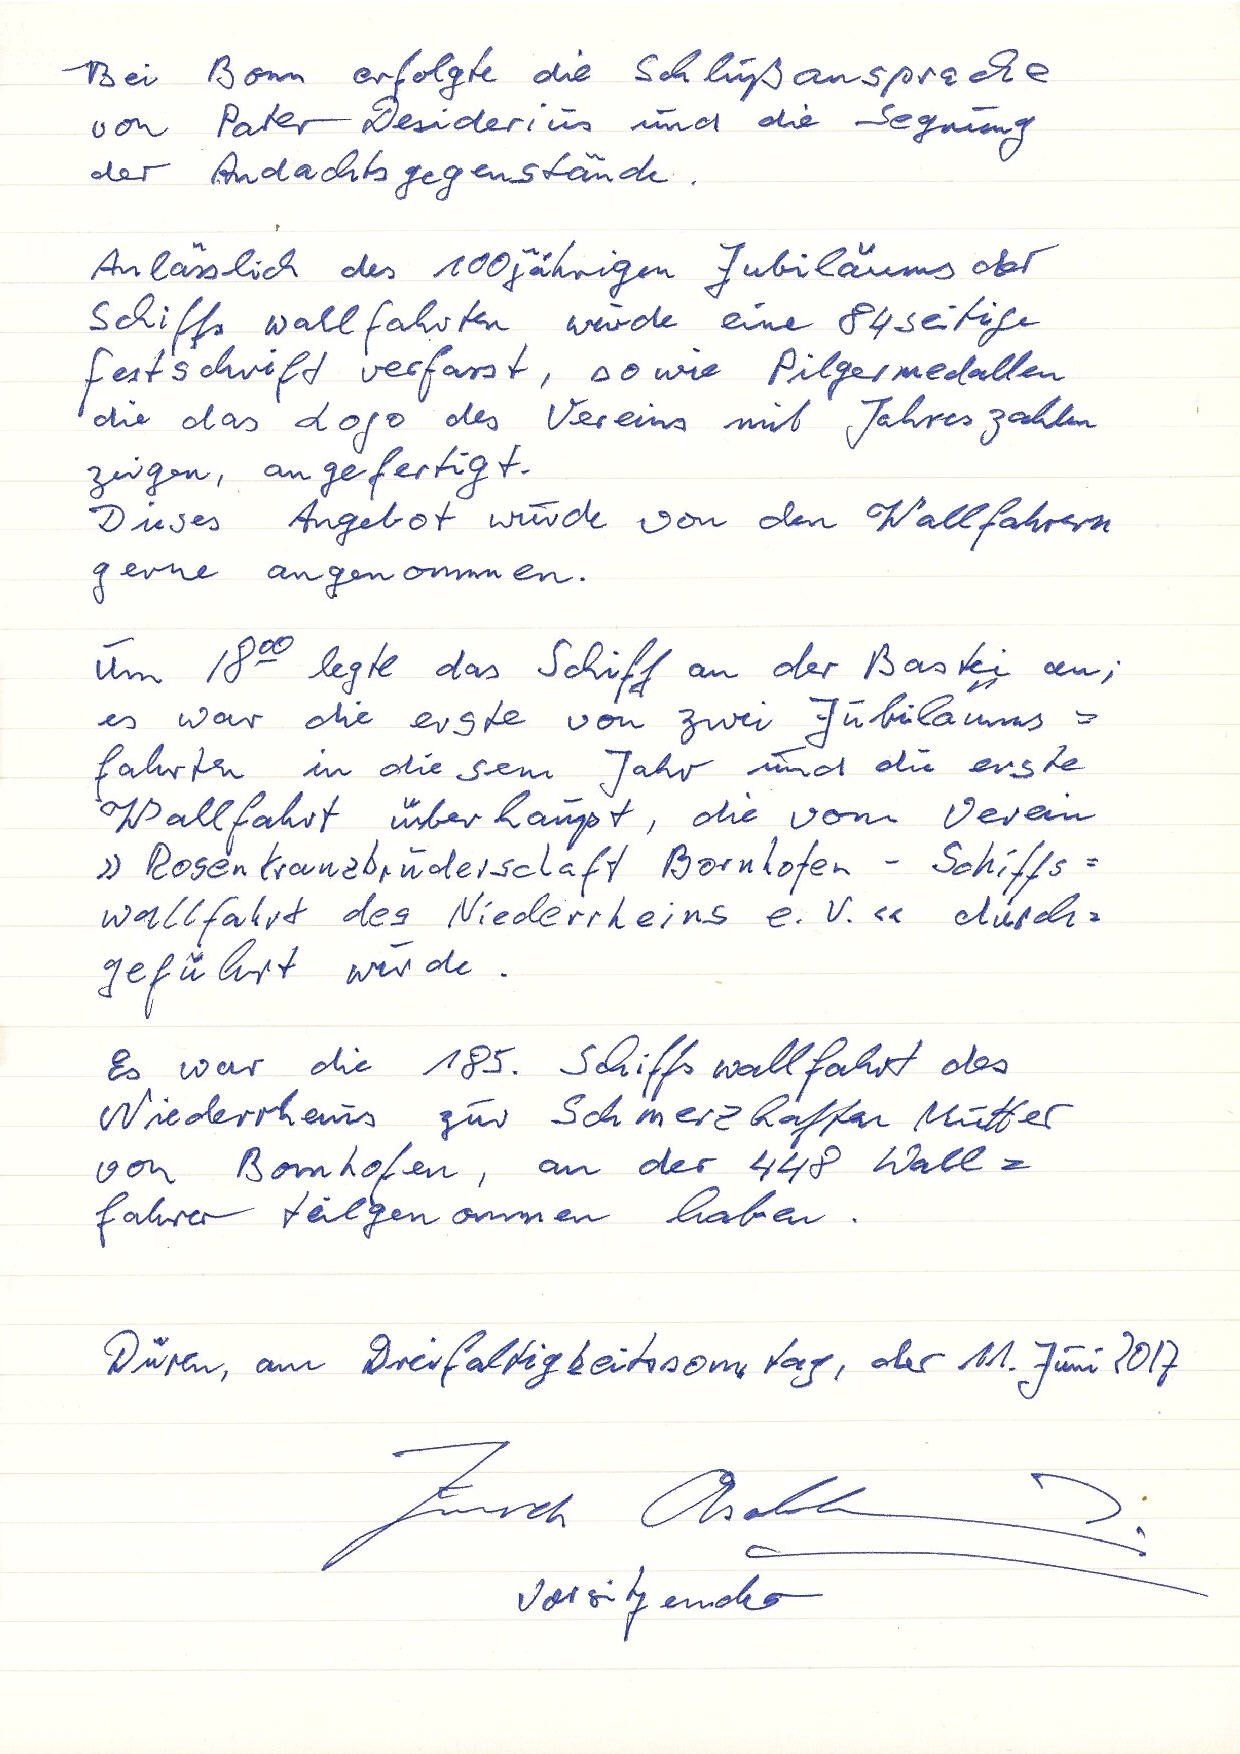 Bei Bonn erfolgte die Schlußansprache
von Pater Desiderius und die Segnung
der Andachtsgegenstände.
Anlässlich des 100jährigen Jubiläums der
Schiffswallfahrten wurde eine 84seitige
Festschrift verfasst, sowie Pilgermedallen
die das Logo des Vereins mit Jahreszahlen
zeigen, angefertigt.
Dieses Angebot wurde von den Wallfahrern
gerne angenommen.
Um 18⁰⁰ legte das Schiff an der Bastei an;
es war die erste von zwei Jubiläums=
fahrten in diesem Jahr und die erste
Wallfahrt überhaupt, die vom Verein
»Rosenkranzbruderschaft Bornhofen - Schiffs=
wallfahrt des Niederrheins e. V.« durch=
geführt wurde.
Es war die 185. Schiffswallfahrt des
Niederrheins zur Schmerzhaften Mutter
von Bornhofen, an der 448 Wall=
fahrer teilgenommen haben.
Düren, am Dreifaltigkeitssonntag, der 11. Juni 2017
Vorsitzender